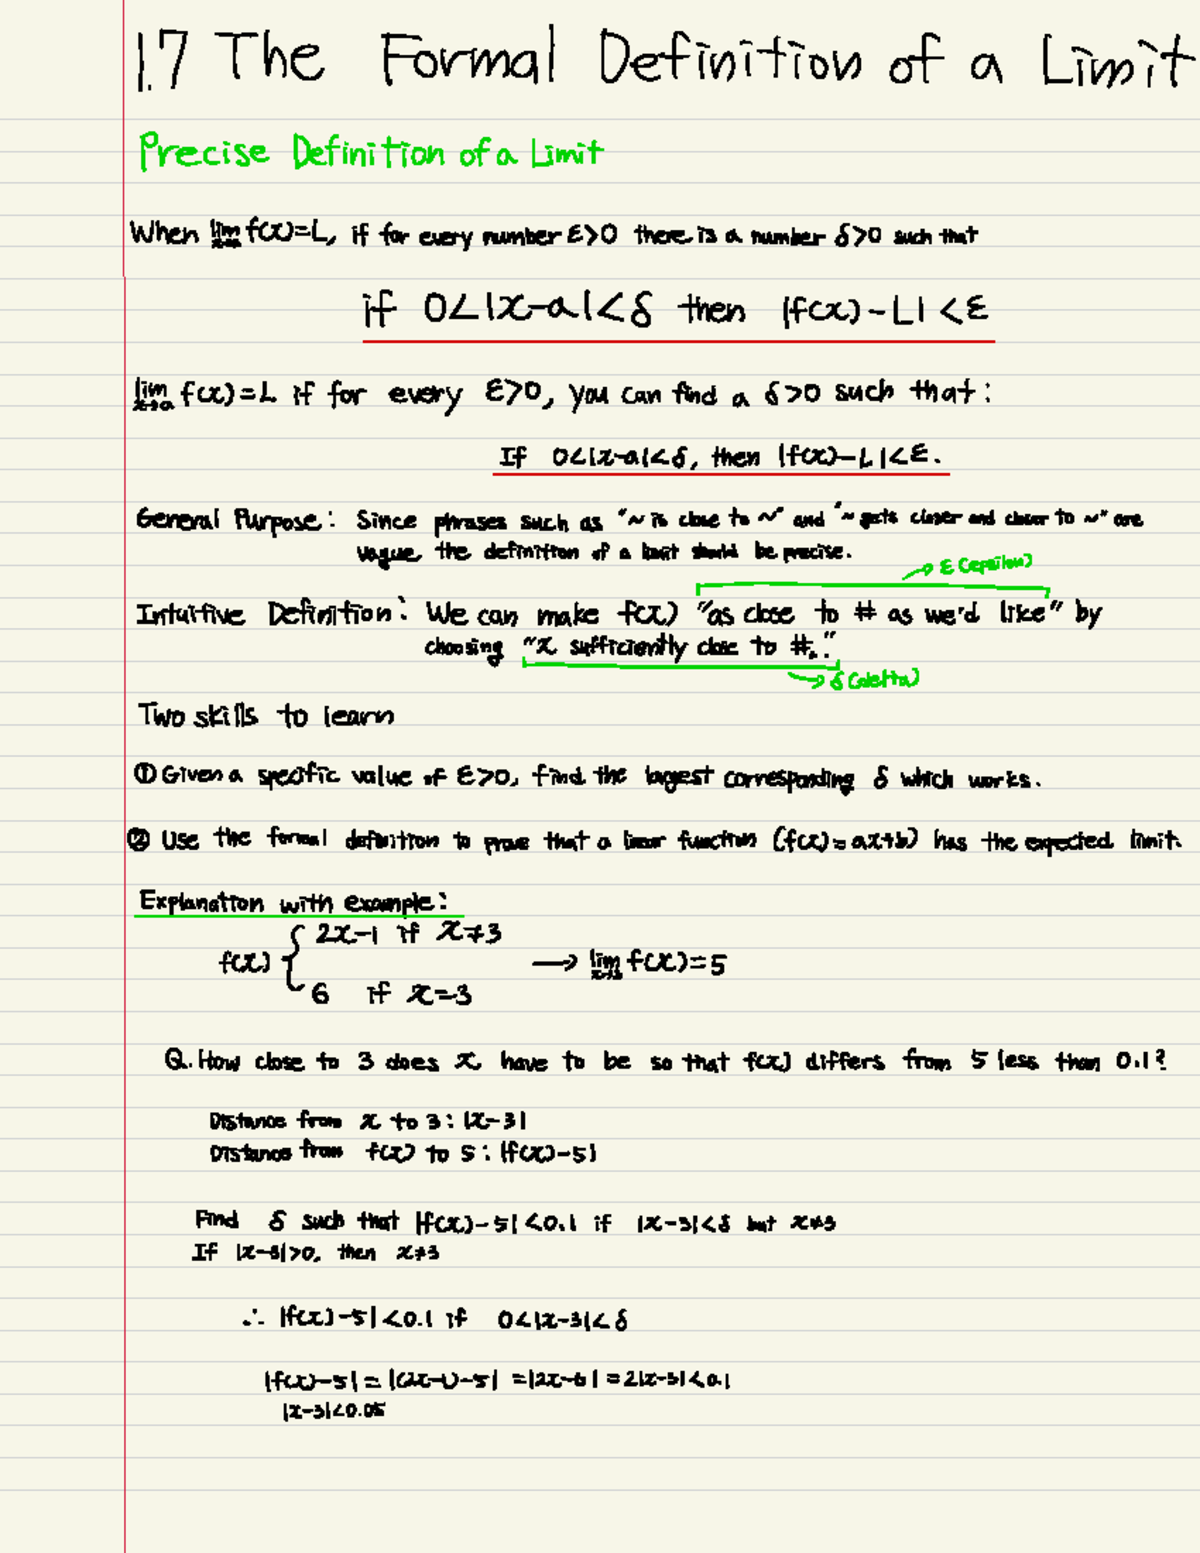 1.7 The Formal Definition of a Limit
Precise Definition of a Limit
When lim x→a f(x)=L, if for every number ε>0 there is a number δ>0 such that
if 0<|x-a|<δ then |f(x)-L|<ε
lim x→a f(x)=L if for every ε>0, you can find a δ>0 such that:
If 0<|x-a|<δ, then |f(x)-L|<ε.
General Purpose: Since phrases such as "~ is close to ~" and "~ gets closer and closer to ~" are
vague, the definition of a limit should be precise.
→ ε (epsilon)
Intuitive Definition: We can make f(x) "as close to # as we'd like" by
choosing "x sufficiently close to #."
→ δ (delta)
Two skills to learn
① Given a specific value of ε>0, find the largest corresponding δ which works.
② Use the formal definition to prove that a linear function (f(x)=ax+b) has the expected limit.
Explanation with example:
f(x) { 2x-1 if x≠3
→ lim x→3 f(x)=5
6 if x=3
Q. How close to 3 does x have to be so that f(x) differs from 5 less than 0.1?
Distance from x to 3: |x-3|
Distance from f(x) to 5: |f(x)-5|
Find δ such that |f(x)-5|<0.1 if |x-3|<δ but x≠3
If |x-3|>0, then x≠3
∴ |f(x)-5|<0.1 if 0<|x-3|<δ
|f(x)-5|=|(2x-1)-5|=|2x-6|=2|x-3|<0.1
|x-3|<0.05